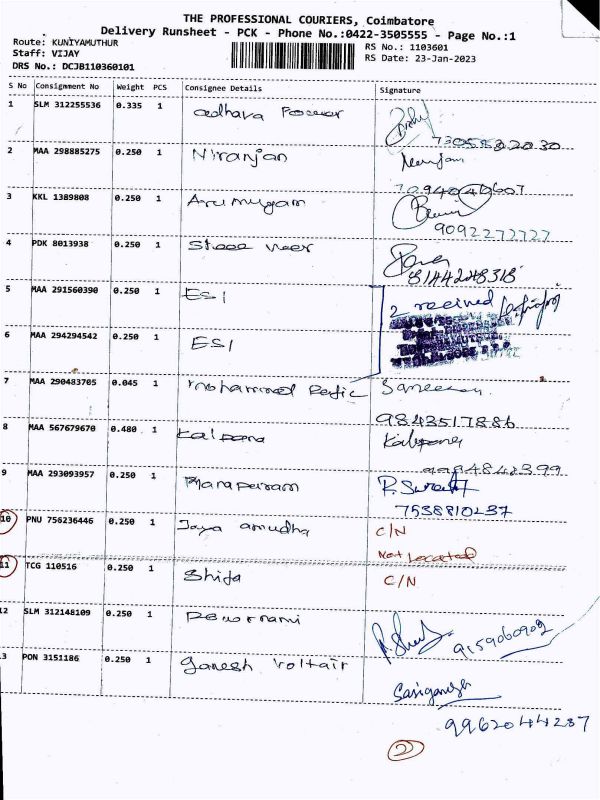 THE PROFESSIONAL COURIERS, Coimbatore
Delivery Runsheet - PCK - Phone No.:0422-3505555 - Page No.:1
Route: KUNIYAMUTHUR
Staff: VIJAY
DRS No.: DCJB110360101
RS No.: 1103601
RS Date: 23-Jan-2023
S No Consignment No Weight PCS Consignee Details Signature
1 SLM 312255536 0.335 1 adhava
2 MAA 298885275 0.250 1 Niranjan
3 KKL 1389808 0.250 1 Arumugam
9092272727
4 PDK 8013938 0.250 1
8144248318
5 MAA 291560390 0.250 1 ESI 2 received
6 MAA 294294542 0.250 1 ESI
7 MAA 290483705 0.045 1 mohammed
9843517886
8 MAA 567679670 0.480 1 Kalpana Kalpana
9 MAA 293093957 0.250 1
7538810237
10 PNU 756236446 0.250 1 Jaya amudha C/N
Not Located
11 TCG 110516 0.250 1 Shifa C/N
12 SLM 312148109 0.250 1
9159060902
3 PON 3151186 0.250 1 Ganesh Voltair
Sasiganesh
9962044287
2